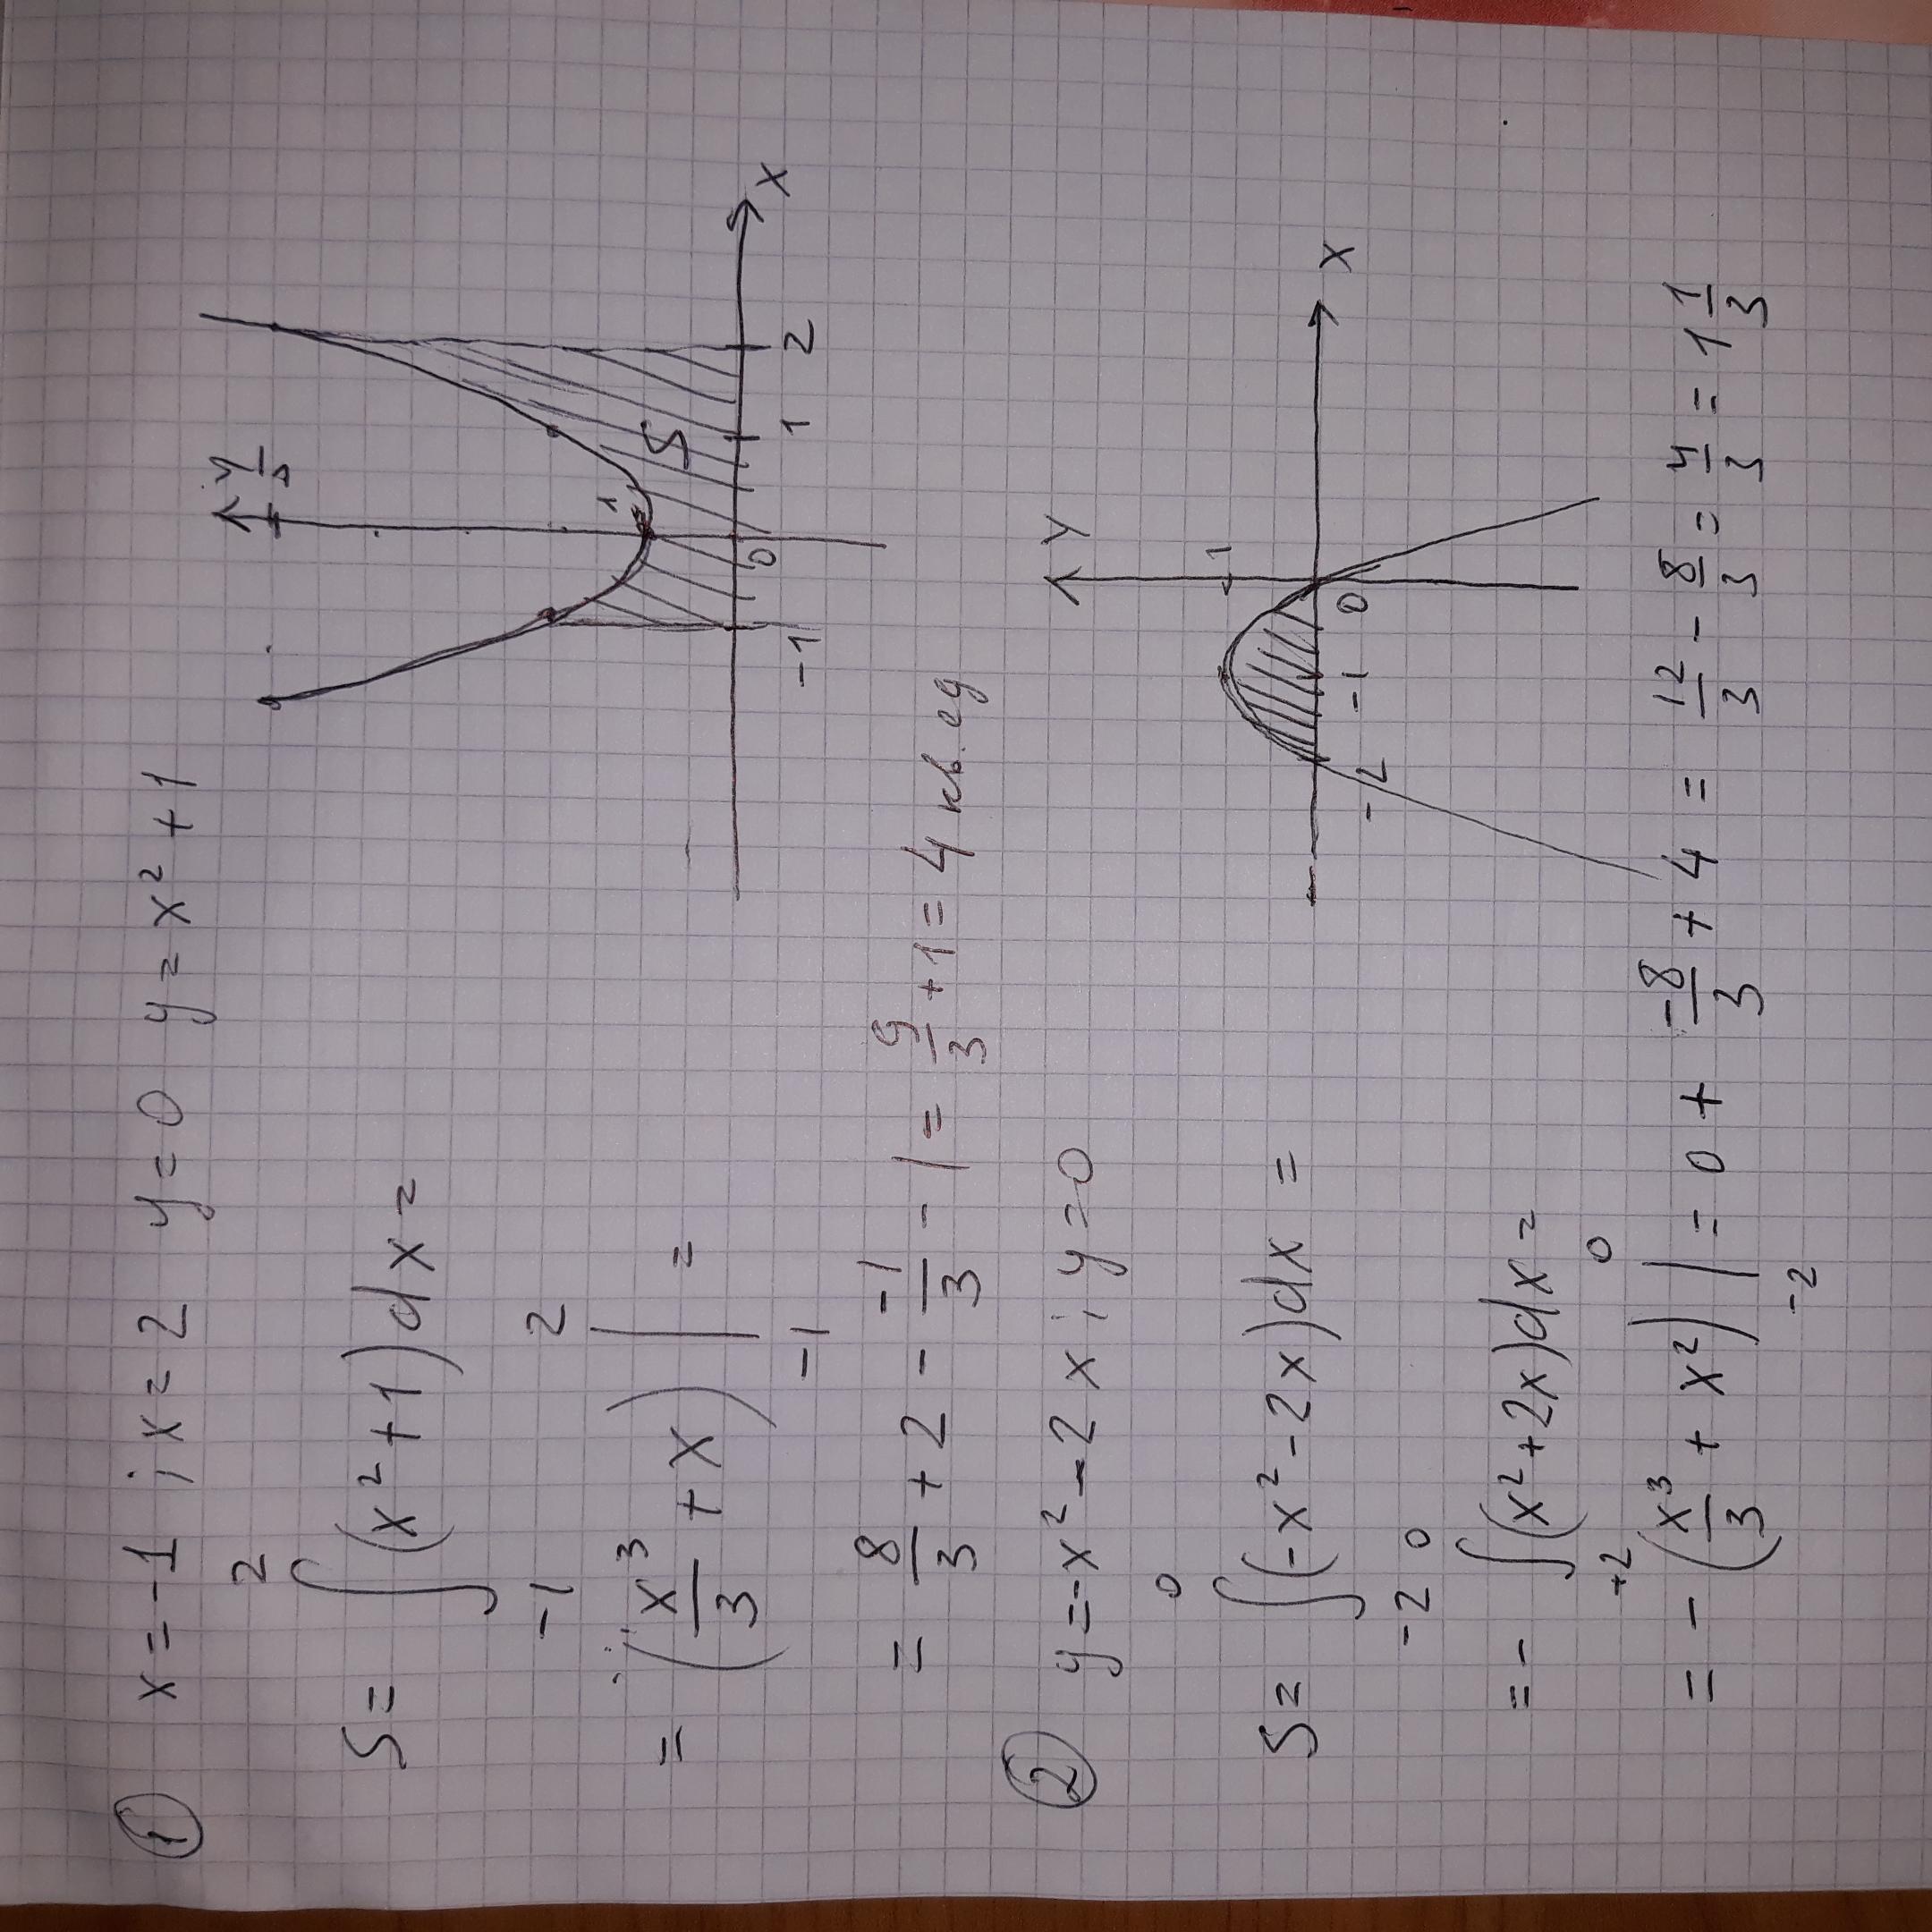 ① x=-1 ; x=2 y=0 y=x²+1
S= ∫₋₁² (x²+1)dx=
= (x³/3 + x) |₋₁² =
= 8/3 + 2 - -1/3 - 1 = 9/3 + 1 = 4 кв. ед
y
5
1
S
-1
0
1
2
x
② y=-x²-2x ; y=0
S= ∫₋₂⁰ (-x²-2x)dx =
=- ∫₊₂⁰ (x²+2x)dx=
= - (x³/3 + x²) |₋₂⁰ = 0 + -8/3 + 4 = 12/3 - 8/3 = 4/3 = 1 1/3
y
1
-2
-1
0
x